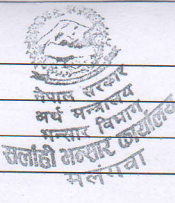 नेपाल सरकार
अर्थ मन्त्रालय
भन्सार विभाग
सर्लाही भन्सार कार्यालय
मलंगवा